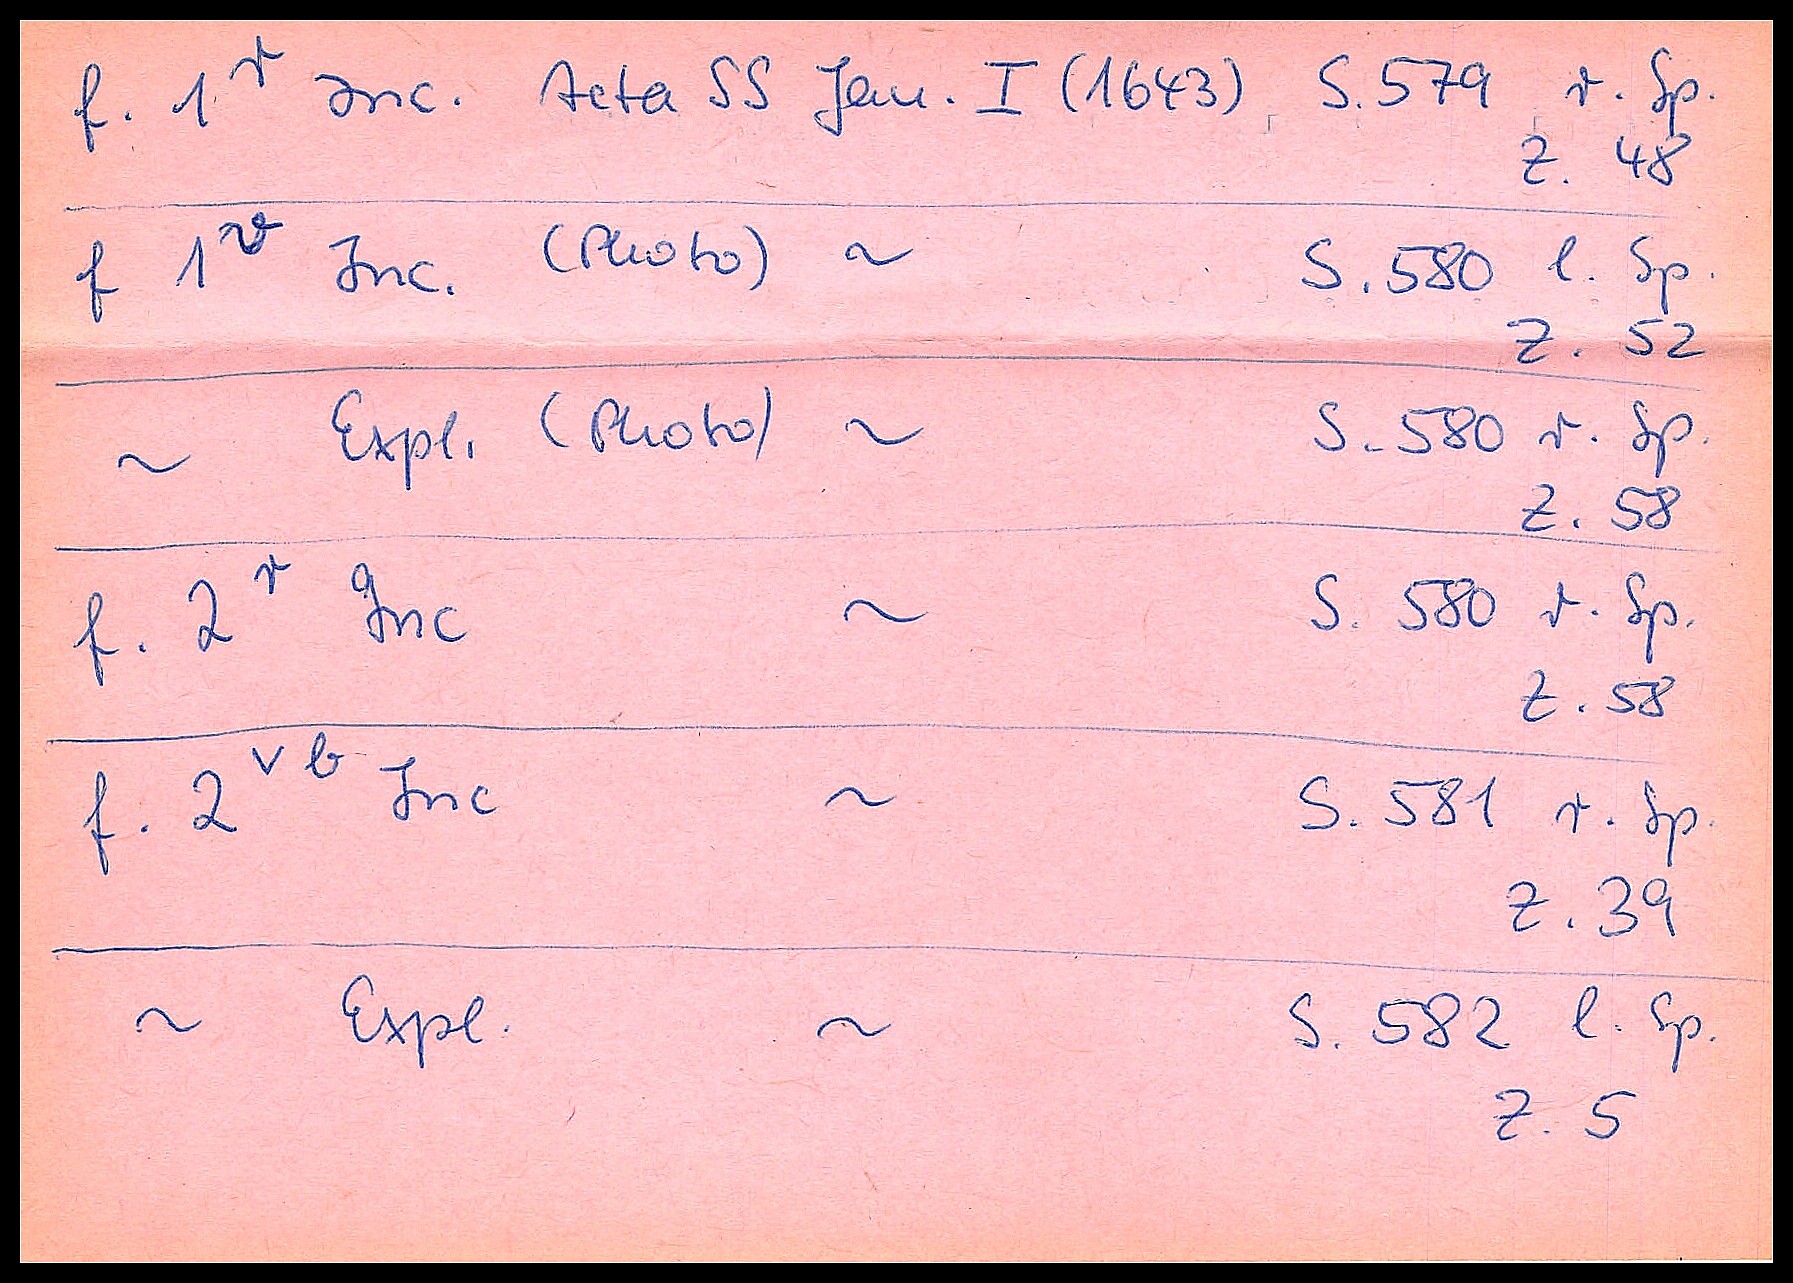 f. 1r Inc. Acta SS Jan. I (1643) S. 579 r. Sp.
Z. 48
f 1v Inc. (Photo) ~ S. 580 l. Sp.
Z. 52
~ Expl. (Photo) ~ S. 580 r. Sp.
Z. 58
f. 2r Inc ~ S. 580 r. Sp.
Z. 58
f. 2vb Inc ~ S. 581 r. Sp.
Z. 39
~ Expl. ~ S. 582 l. Sp.
Z. 5